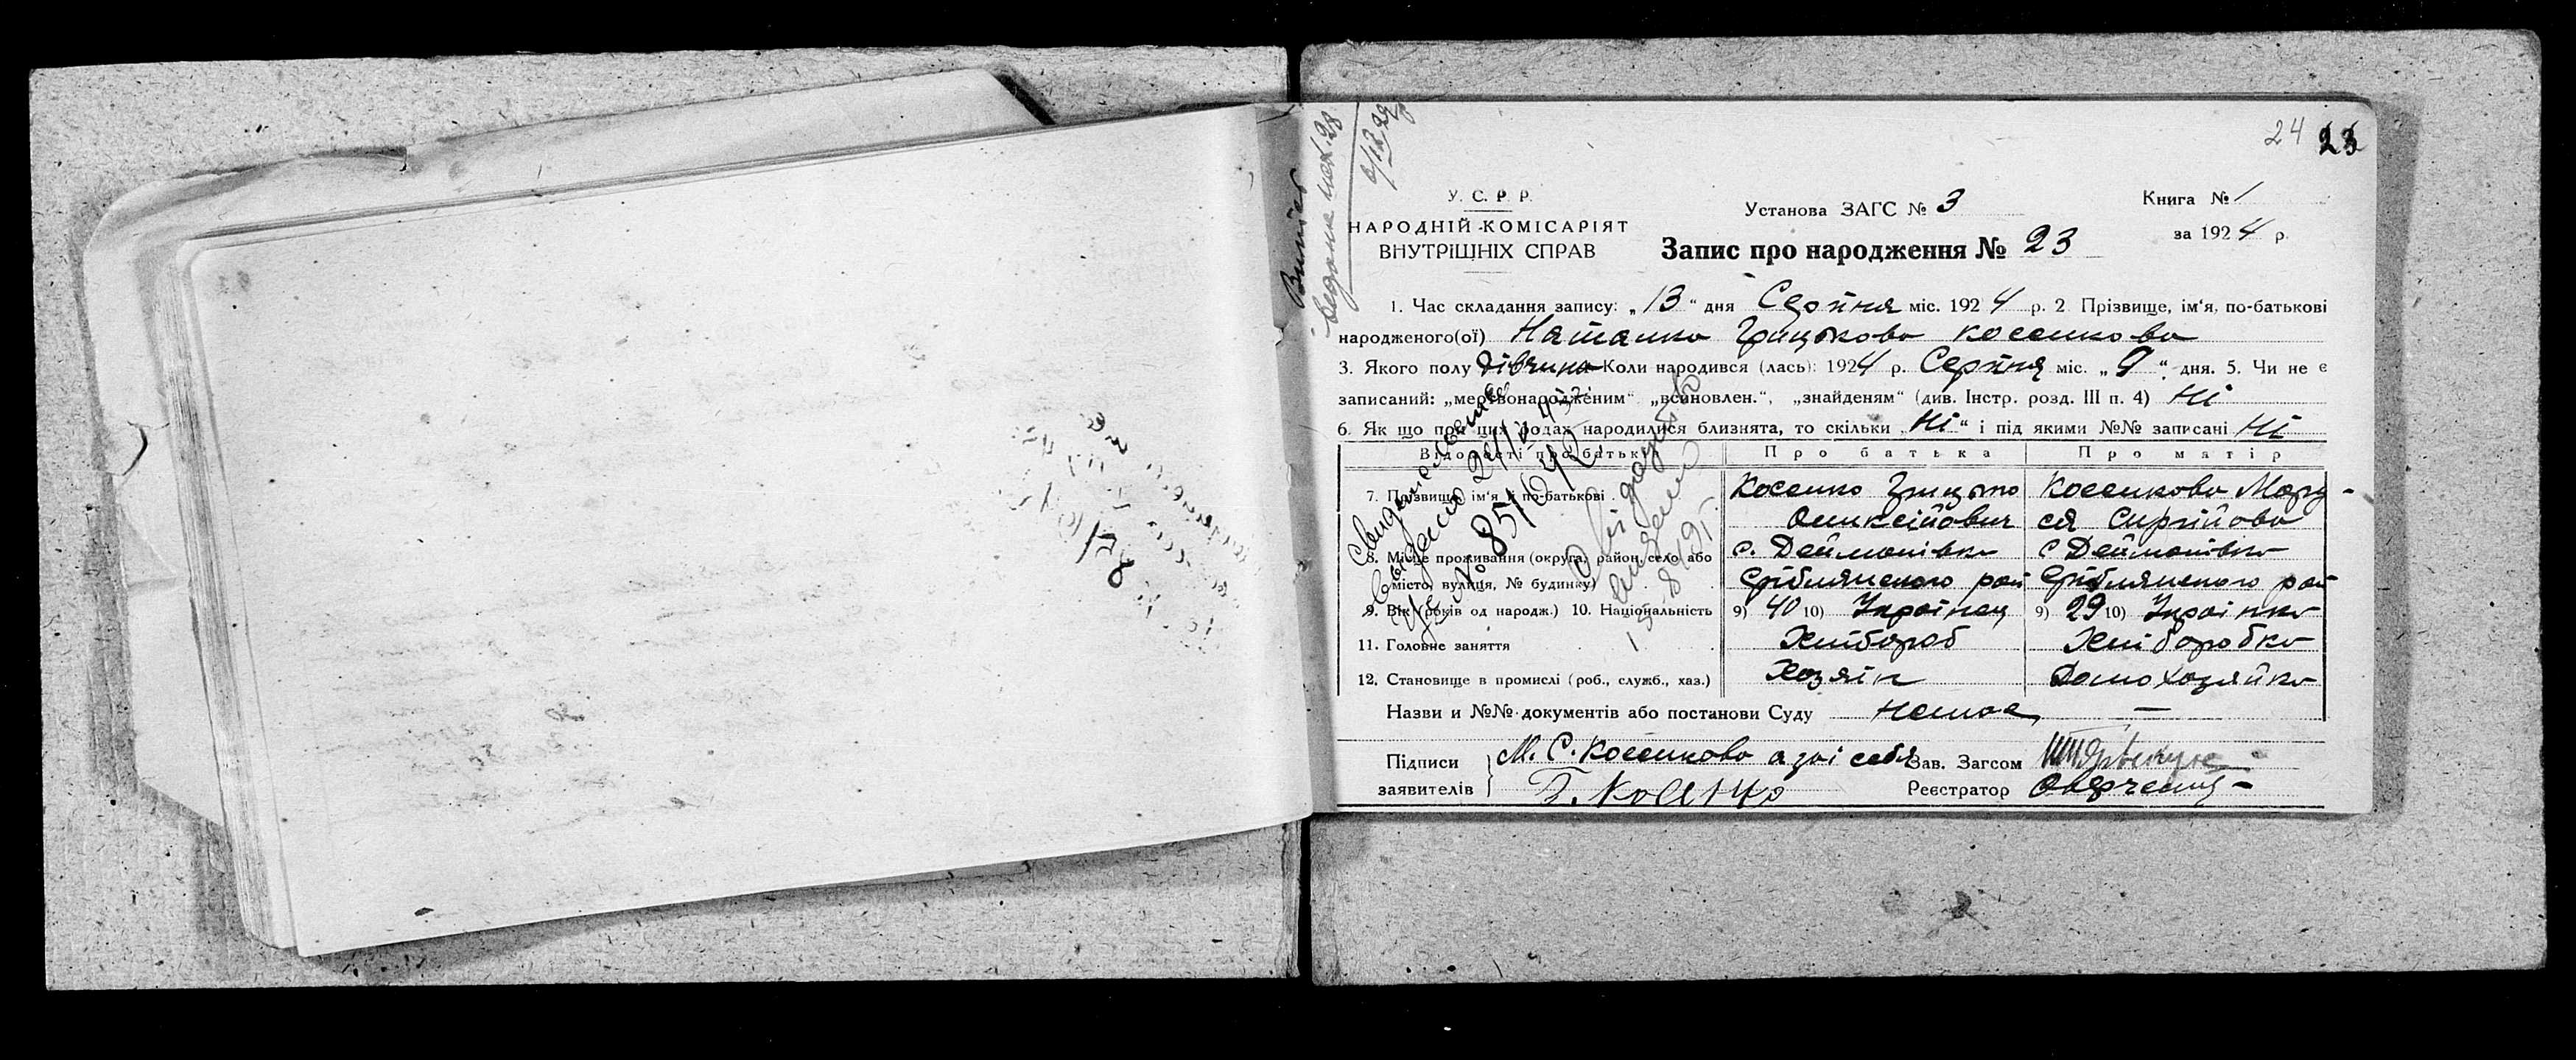 24 23
У. С. Р. Р.
НАРОДНІЙ КОМІСАРІЯТ
ВНУТРІШНІХ СПРАВ
Установа ЗАГС № 3
Книга № 1
за 1924 р.
Запис про народження № 23
1. Час складання запису: „13“ дня Серпня міс. 1924 р. 2 Прізвище, ім'я, по-батькові
народженого(ої) Наталка Грицькова Косенкова
3. Якого полу дівчина Коли народився (лась): 1924 р. Серпня міс. „9“ дня. 5. Чи не є
записаний: „мертвонародженим“ „всиновлен.“, „знайденям“ (див. Інстр. розд. III п. 4) Ні
6. Як що при цих родах народилися близнята, то скільки „Ні“ і під якими №№ записані Ні
Відомості про батьків Про батька Про матір
7. Прізвище, ім'я і по-батькові Косенко Грицько Косенкова Мару-
Оликсійович ся Сиргійова
8. Місце проживання (округа, район, село або с. Деймонівка с Деймонівка
місто, вулиця, № будинку) Срібнянського рай Срібнянського рай
9. Вік (років од народж.) 10. Національність 9) 40 10) Українец 9) 29 10) Українка
11. Головне заняття Хлібороб Хліборобка
12. Становище в промислі (роб., служб., хаз.) Хозяін Домохозяйка
Назви и №№ документів або постанови Суду немае —
Підписи М. С. Косенкова а заі себя Зав. Загсом
заявителів Г. Косенко Реєстратор
Витяг